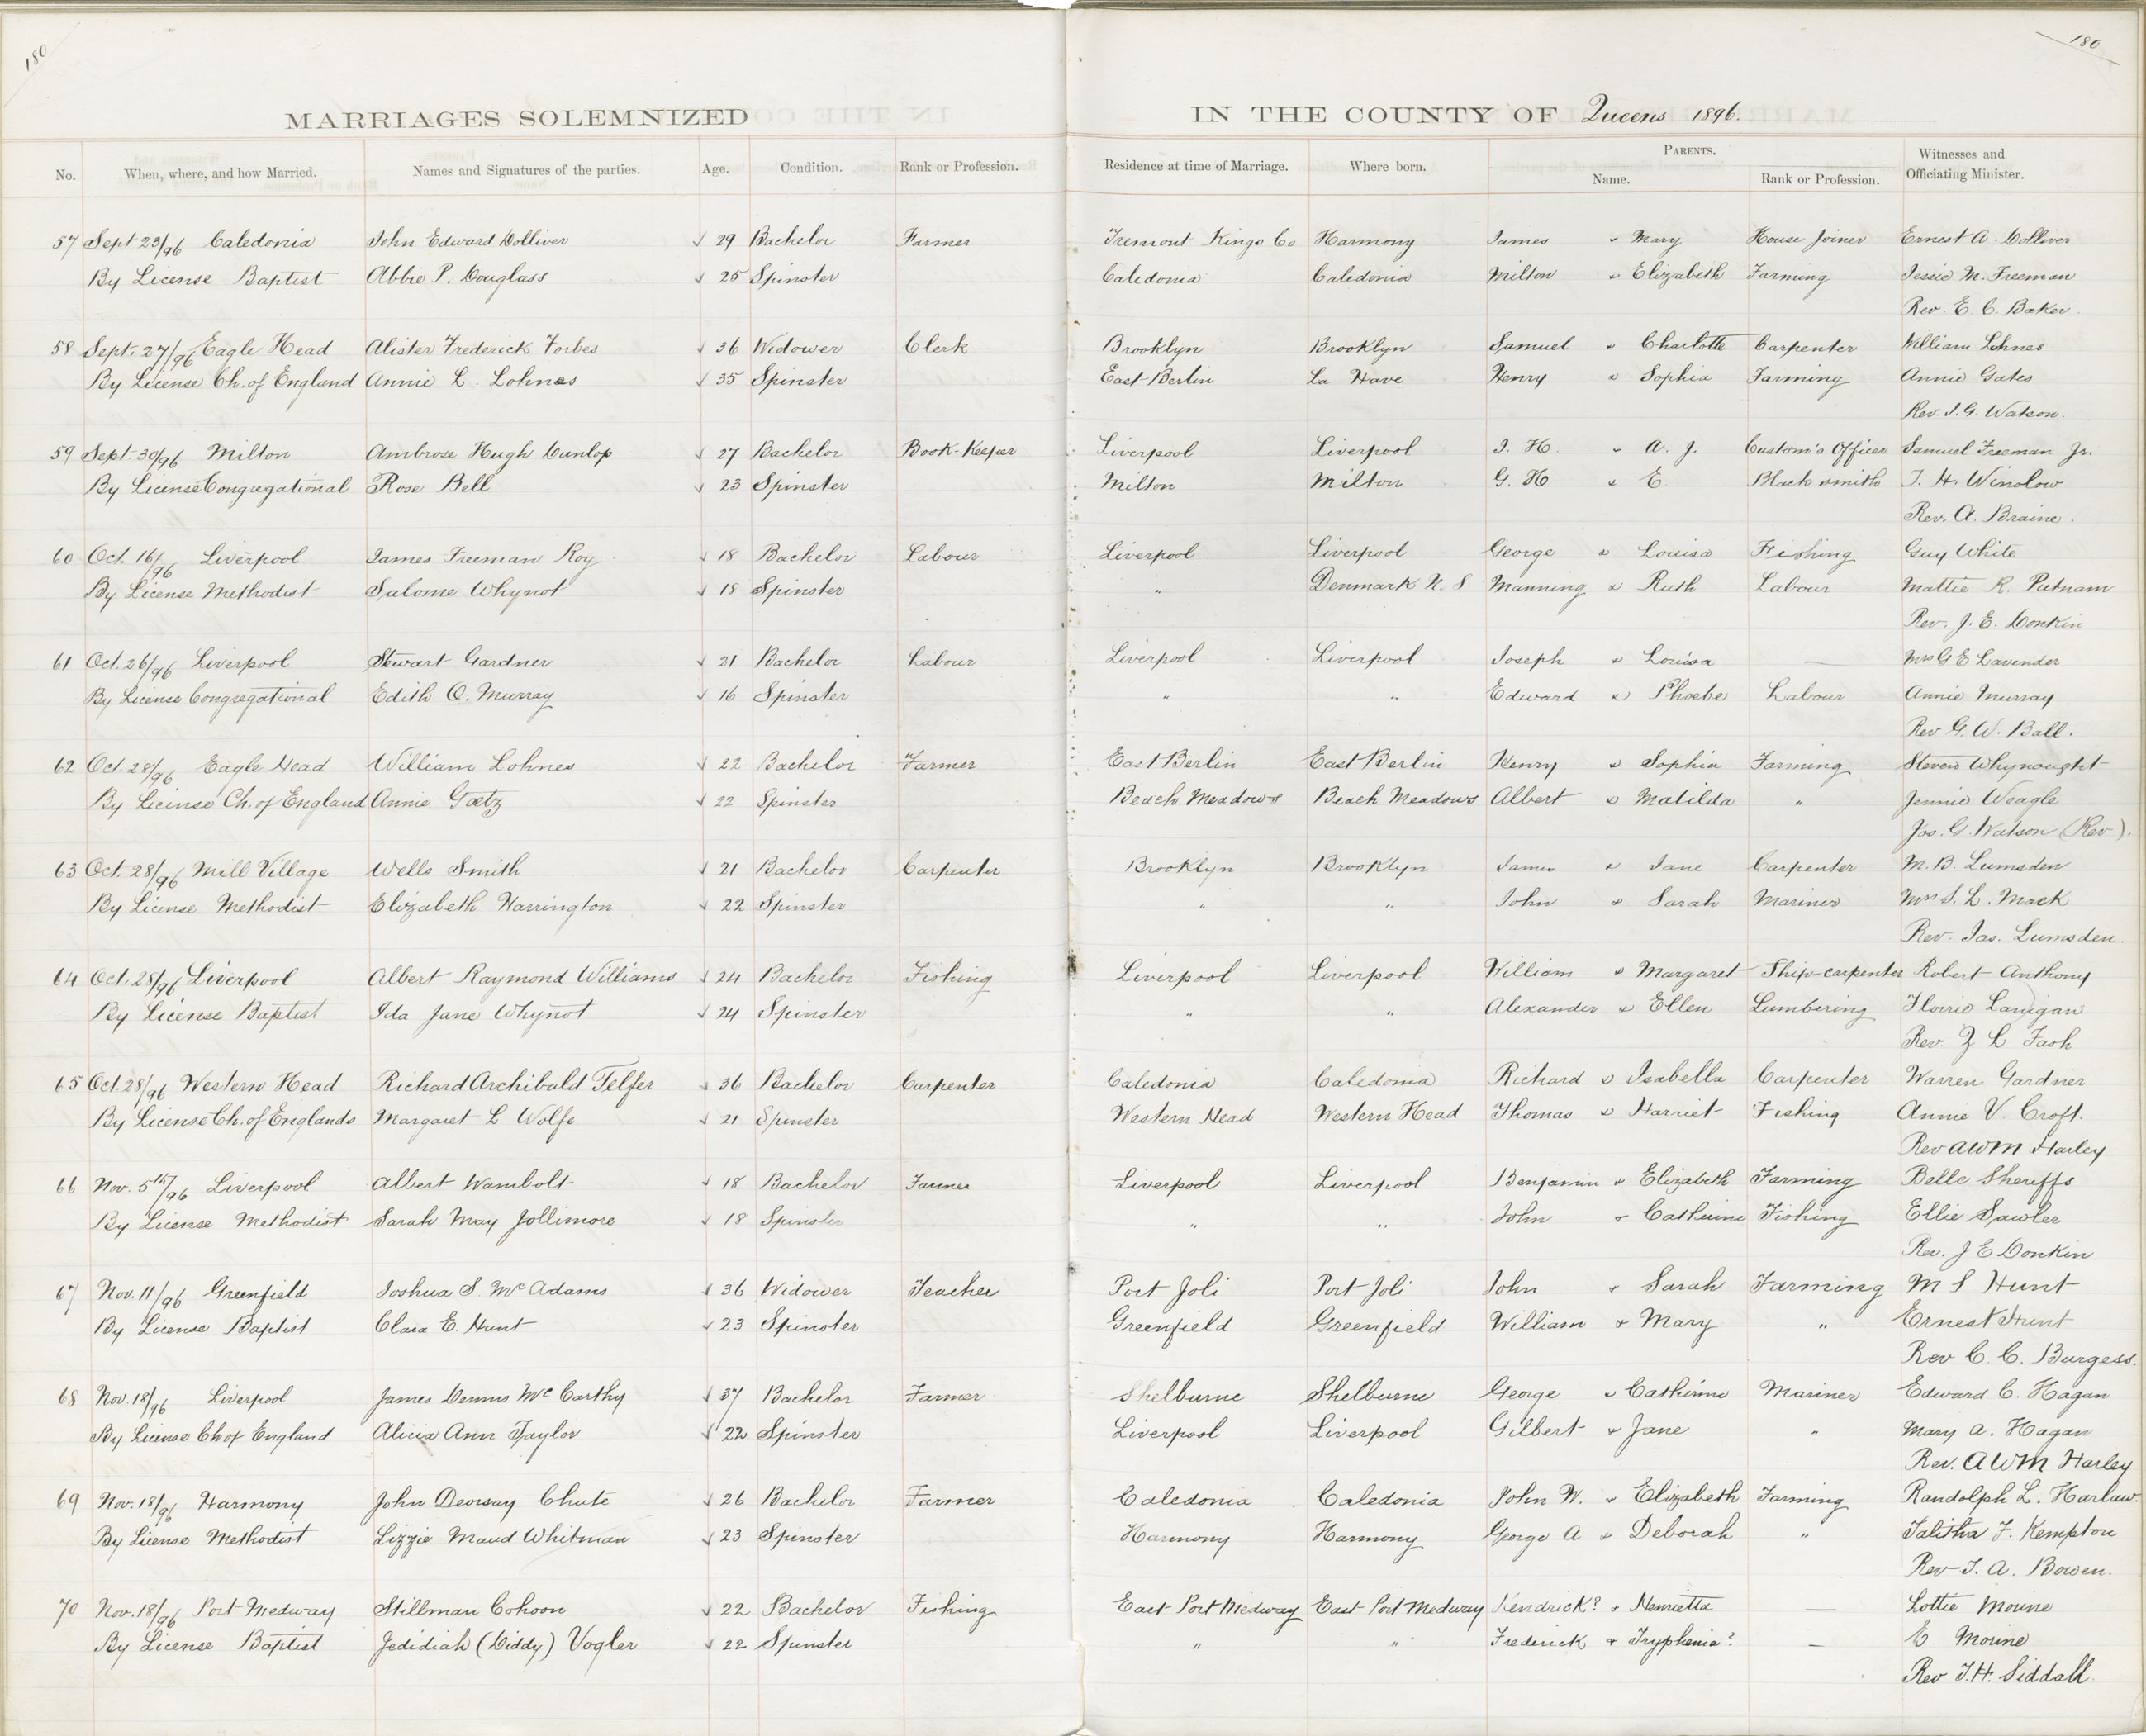 180
180
MARRIAGES SOLEMNIZED IN THE COUNTY OF Queens 1896.
No. When, where, and how Married. Names and Signatures of the parties. Age. Condition. Rank or Profession. Residence at time of Marriage. Where born. PARENTS. Name. Rank or Profession. Witnesses and Officiating Minister.
57 Sept 23/96 Caledonia John Edward Dolliver √ 29 Bachelor Farmer Tremont Kings Co Harmony James & Mary House Joiner Ernest A. Dolliver
By License Baptist Abbie P. Douglass √ 25 Spinster Caledonia Caledonia Milton & Elizabeth Farming Jessie M. Freeman
Rev. E. C. Baker
58 Sept. 27/96 Eagle Head Alister Frederick Forbes √ 36 Widower Clerk Brooklyn Brooklyn Samuel & Charlotte Carpenter William Lohnes
By License Ch. of England Annie L. Lohnes √ 35 Spinster East Berlin La Have Henry & Sophia Farming Annie Gates
Rev. J. G. Watson.
59 Sept. 30/96 Milton Ambrose Hugh Dunlop √ 27 Bachelor Book-Keeper Liverpool Liverpool J. H. & A. J. Custom's Officer Samuel Freeman Jr.
By License Congregational Rose Bell √ 23 Spinster Milton Milton G. H & E. Blacksmith T. H. Winslow
Rev. A. Braine.
60 Oct. 16/96 Liverpool James Freeman Roy √ 18 Bachelor Labour Liverpool Liverpool George & Louisa Fishing Guy White
By License Methodist Salome Whynot √ 18 Spinster " Denmark N. S Manning & Ruth Labour Mattie R. Putnam
Rev. J. E. Donkin
61 Oct. 26/96 Liverpool Stewart Gardner √ 21 Bachelor Labour Liverpool Liverpool Joseph & Louisa — Mrs G E Lavender
By License Congregational Edith O. Murray √ 16 Spinster " " Edward & Phoebe Labour Annie Murray
Rev G. W. Ball.
62 Oct. 28/96 Eagle Head William Lohnes √ 22 Bachelor Farmer East Berlin East Berlin Henry & Sophia Farming Steven Whynought
By License Ch. of England Annie Goetz √ 22 Spinster Beach Meadows Beach Meadows Albert & Matilda " Jennie Weagle
Jas. G. Watson (Rev).
63 Oct. 28/96 Mill Village Wells Smith √ 21 Bachelor Carpenter Brooklyn Brooklyn James & Jane Carpenter M. B. Lumsden
By License Methodist Elizabeth Harrington √ 22 Spinster " " John & Sarah Mariner Mrs S. L. Mack
Rev. Jas. Lumsden.
64 Oct. 28/96 Liverpool Albert Raymond Williams √ 24 Bachelor Fishing Liverpool Liverpool William & Margaret Ship-carpenter Robert Anthony
By License Baptist Ida Jane Whynot √ 24 Spinster " " Alexander & Ellen Lumbering Florrie Lanigan
Rev. Z L Fash
65 Oct. 28/96 Western Head Richard Archibald Telfer √ 36 Bachelor Carpenter Caledonia Caledonia Richard & Isabella Carpenter Warren Gardner
By License Ch. of Englands Margaret L Wolfe √ 21 Spinster Western Head Western Head Thomas & Harriet Fishing Annie V. Croft.
Rev AWM Harley
66 Nov. 5th/96 Liverpool Albert Wambolt √ 18 Bachelor Farmer Liverpool Liverpool Benjamin & Elizabeth Farming Belle Sheriffs
By License Methodist Sarah May Jollimore √ 18 Spinster " " John & Catherine Fishing Ellie Sawler
Rev. J E Donkin
67 Nov. 11/96 Greenfield Joshua S. McAdams √ 36 Widower Teacher Port Joli Port Joli John & Sarah Farming M S Hunt
By License Baptist Clara E. Hunt √ 23 Spinster Greenfield Greenfield William & Mary " Ernest Hunt
Rev C. C. Burgess.
68 Nov. 18/96 Liverpool James Dennis McCarthy √ 37 Bachelor Farmer Shelburne Shelburne George & Catherine Mariner Edward C. Hagan
By License Ch of England Alicia Ann Taylor √ 22 Spinster Liverpool Liverpool Gilbert & Jane " Mary A. Hagan
Rev. AWM Harley
69 Nov. 18/96 Harmony John Deorsay Chute √ 26 Bachelor Farmer Caledonia Caledonia John W. & Elizabeth Farming Randolph L. Harlow.
By License Methodist Lizzie Maud Whitman √ 23 Spinster Harmony Harmony George A & Deborah " Talitha F. Kempton
Rev J. A. Bowen.
70 Nov. 18/96 Port Medway Stillman Cohoon √ 22 Bachelor Fishing East Port Medway East Port Medway Kendrick? & Henrietta — Lottie Morine
By License Baptist Jedidiah (Diddy) Vogler √ 22 Spinster " " Frederick & Tryphenia? — E. Morine
Rev T. H. Siddall